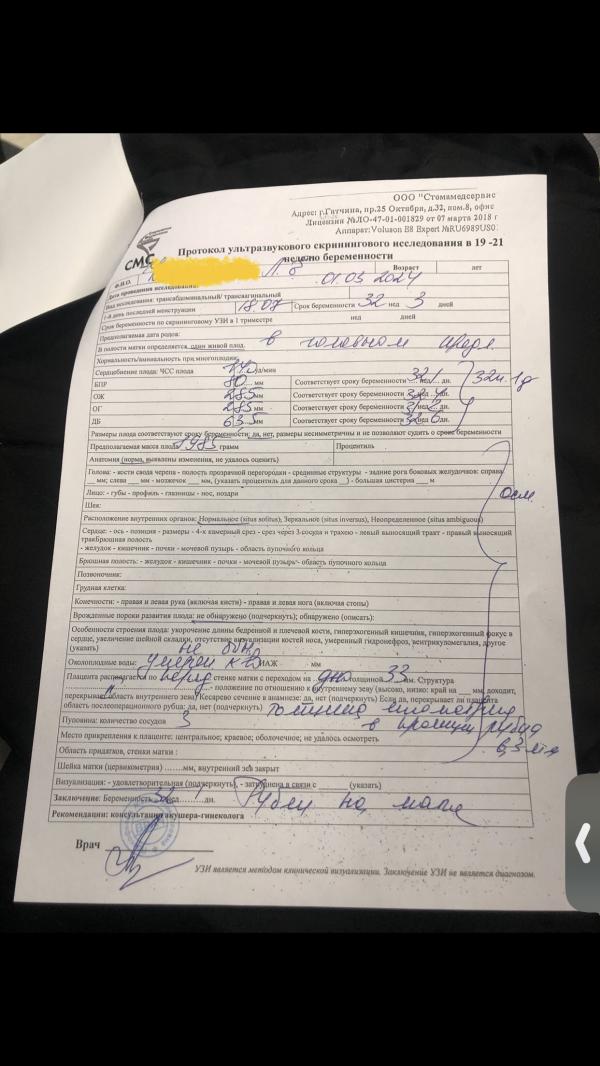 ООО "Стомамедсервис
Адрес: г.Гатчина, пр.25 Октября, д.32, пом.8, офис
Лицензия №ЛО-47-01-001829 от 07 марта 2018 г
Аппарат: Voluson E8 Expert №RU6989US0
СМС
Протокол ультразвукового скринингового исследования в 19 -21
неделю беременности
Ф.И.О. Возраст лет
Дата проведения исследования: 01.03 2024
Вид исследования: трансабдоминальный/ трансвагинальный
1-й день последней менструации 18.07 Срок беременности 32 нед 3 дней
Срок беременности по скрининговому УЗИ в 1 триместре нед дней
Предполагаемая дата родов:
В полости матки определяется один живой плод. в головном предл.
Хориальность/амниальность при многоплодии:
Сердцебиение плода: ЧСС плода уд/мин
БПР 80 мм Соответствует сроку беременности нед дн. 32н. 1д
ОЖ 285 мм Соответствует сроку беременности нед дн.
ОГ 285 мм Соответствует сроку беременности нед дн.
ДБ 63.5 мм Соответствует сроку беременности нед дн.
Размеры плода соответствуют сроку беременности: да, нет, размеры несимметричны и не позволяют судить о сроке беременности
Предполагаемая масса плода грамм Процентиль
Анатомия (норма, выявлены изменения, не удалось оценить)
Голова: - кости свода черепа - полость прозрачной перегородки - срединные структуры - задние рога боковых желудочков: справа
___ мм; слева ___ мм - мозжечок ___ мм, (указать процентиль для данного срока __) - большая цистерна ___ м
Лицо: - губы - профиль - глазницы - нос, ноздри
Шея:
Расположение внутренних органов: Нормальное (situs solitus), Зеркальное (situs inversus), Неопределенное (situs ambiguous)
Сердце: - ось - позиция - размеры - 4-х камерный срез - срез через 3-сосуда и трахею - левый выносящий тракт - правый выносящий
тракБрюшная полость
- желудок - кишечник - почки - мочевой пузырь - область пупочного кольца
Брюшная полость: - желудок - кишечник - почки - мочевой пузырь - область пупочного кольца
Позвоночник:
Грудная клетка:
Конечности: - правая и левая рука (включая кисти) - правая и левая нога (включая стопы)
Врожденные пороки развития плода: не обнаружено (подчеркнуть); обнаружено (описать):
Особенности строения плода: укорочение длины бедренной и плечевой кости, гиперэхогенный кишечник, гиперэхогенный фокус в
сердце, увеличение шейной складки, отсутствие визуализации костей носа, умеренный гидронефроз, вентрикуломегалия, другое
(указать) не обн.
Околоплодные воды: ИАЖ мм
Плацента располагается по перед стенке матки с переходом на дно толщиной 33 мм. Структура
- положение по отношению к внутреннему зеву (высоко, низко: край на ___ мм, доходит,
перекрывает область внутреннего зева) Кесарево сечение в анамнезе: да, нет (подчеркнуть) Если да, перекрывает ли плацента
область послеоперационного рубца: да, нет (подчеркнуть) толщина миометрия
Пуповина: количество сосудов 3 в проекции рубца
Место прикрепления к плаценте: центральное; краевое; оболочечное; не удалось осмотреть
Область придатков, стенки матки :
Шейка матки (цервикометрия) ...... мм, внутренний зев закрыт
Визуализация: - удовлетворительная (подчеркнуть), - затруднена в связи с ______ (указать)
Заключение: Беременность 32 нед 1 дн. Рубец на матке
Рекомендации: консультация акушера-гинеколога
Врач
УЗИ является методом клинической визуализации. Заключение УЗИ не является диагнозом.